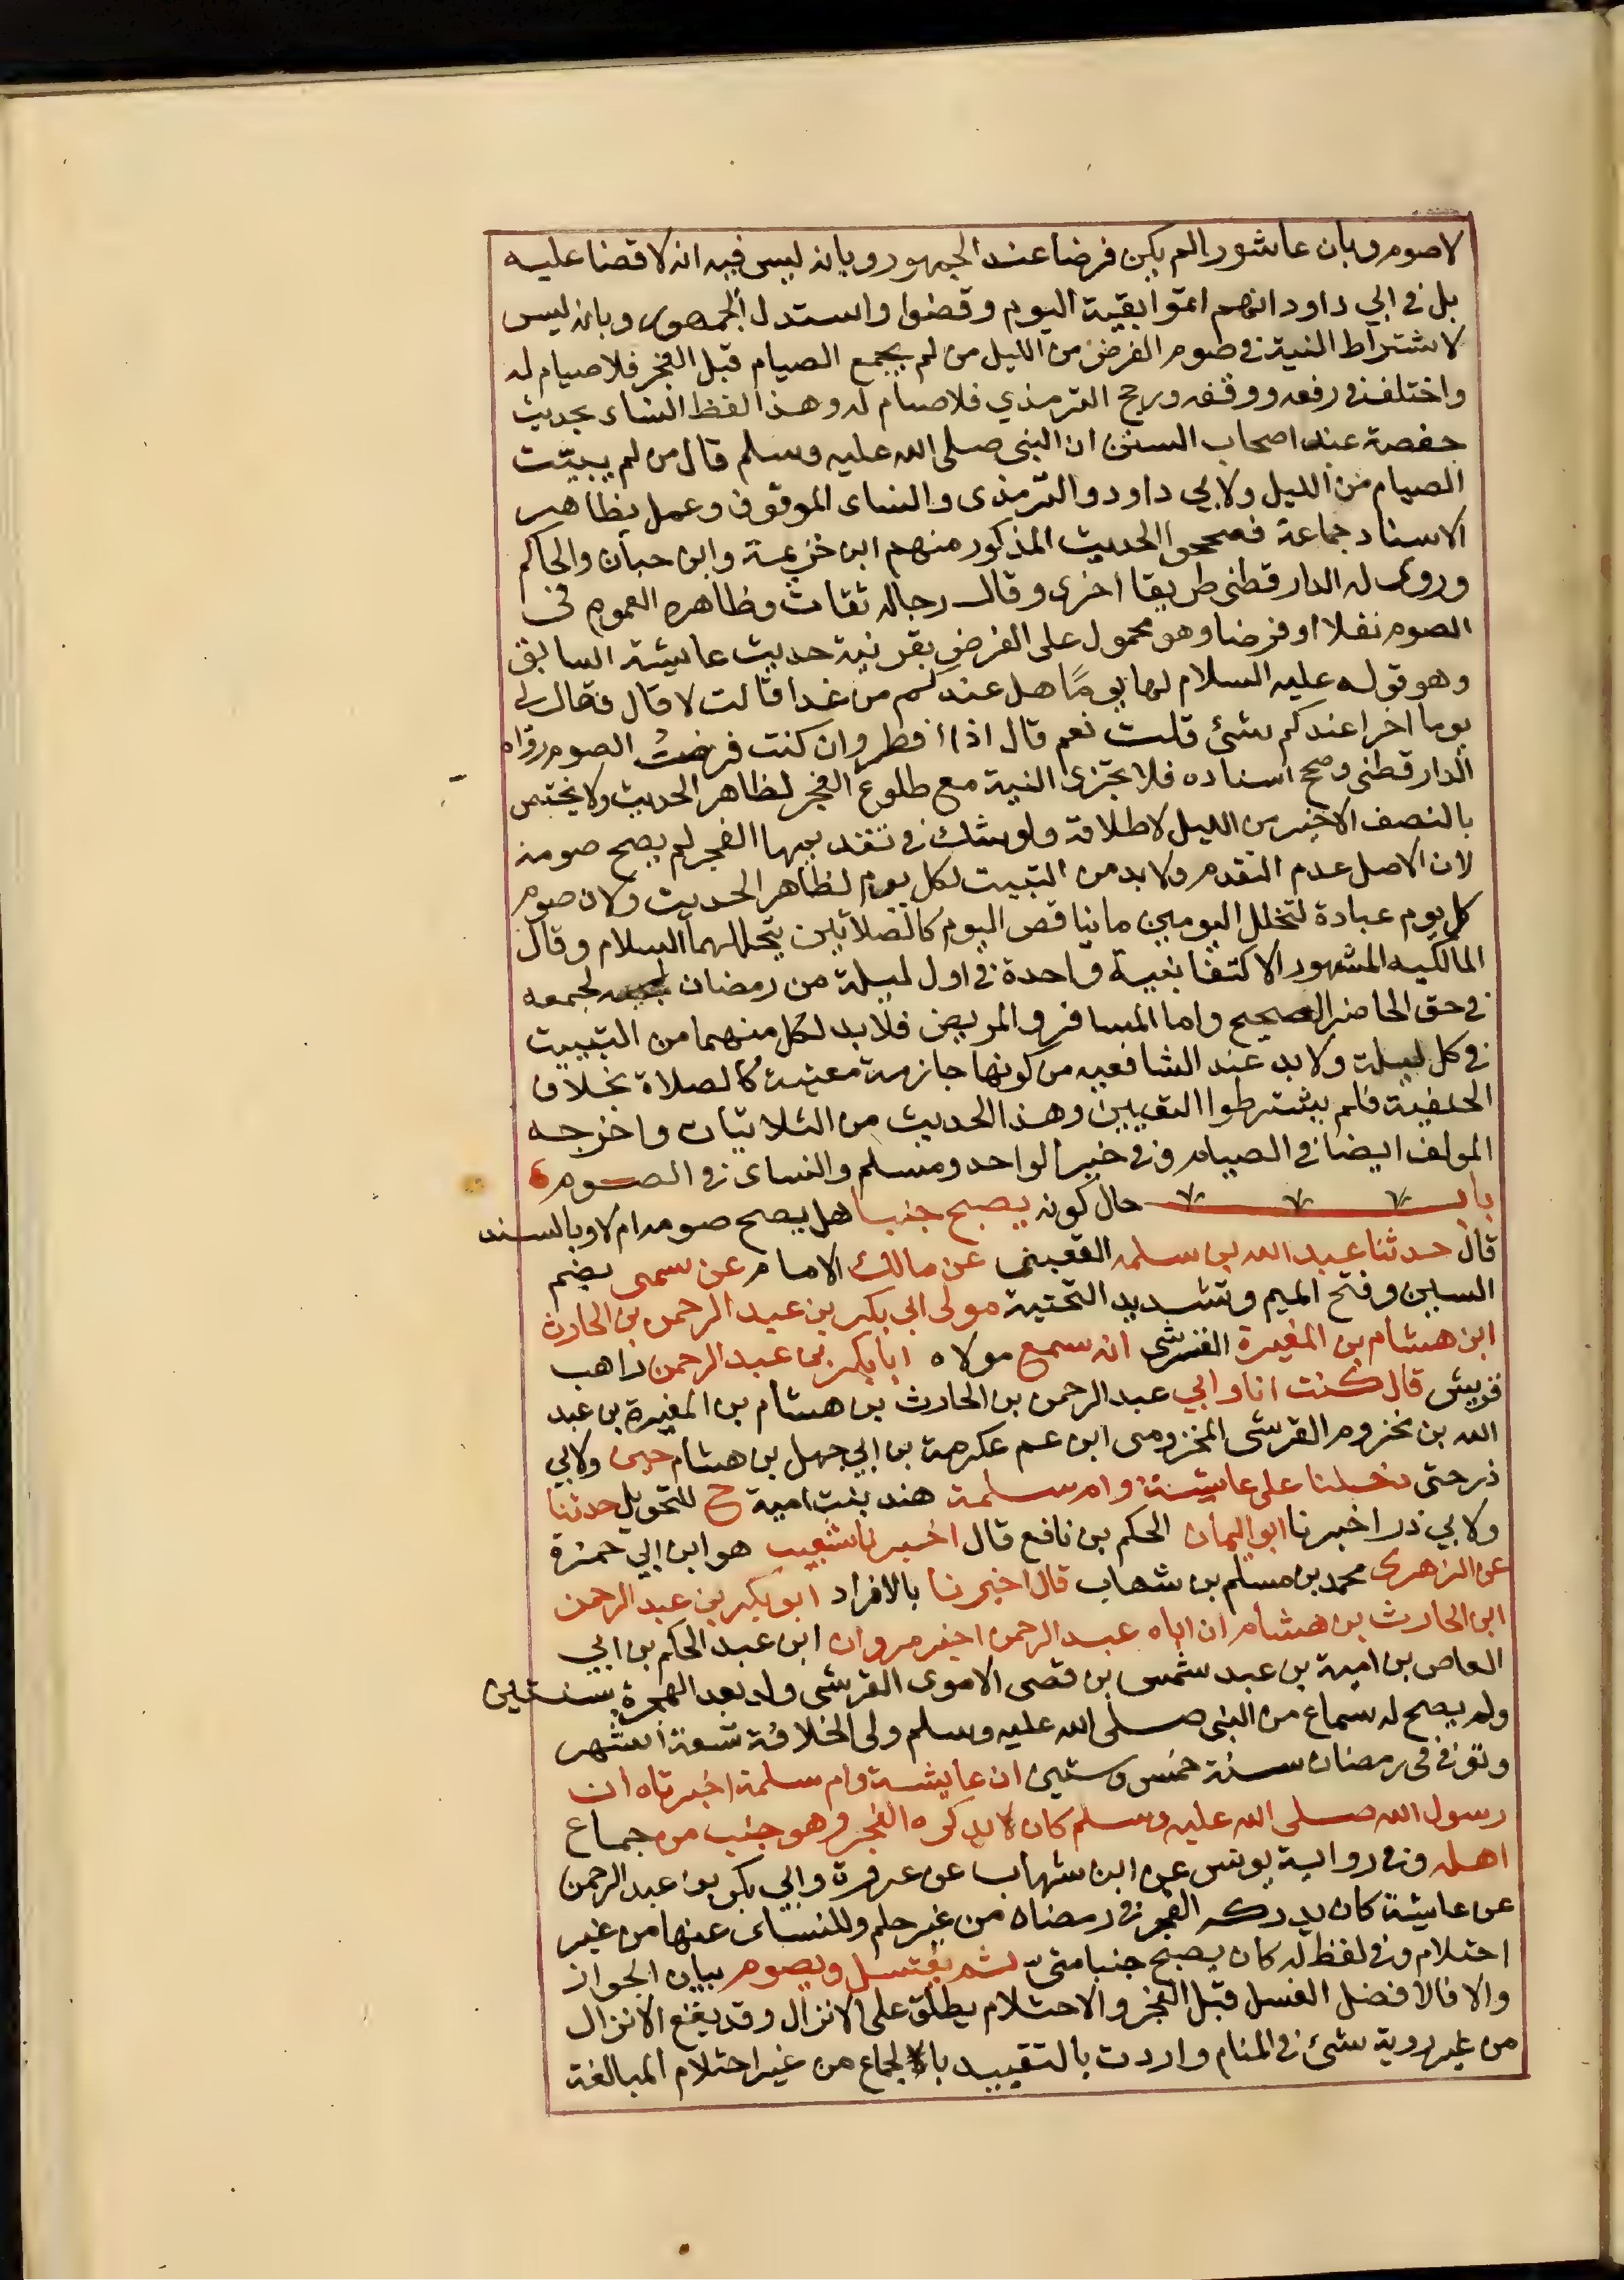 لا صوم وبان عاشورا لم يكن فرضا عند الجمهور وبانه ليس فيه انه لا قضا عليه
بل في ابي داود انهم اتموا بقية اليوم وقضوا واستدل الجمهور وبانه ليس
لاشتراط النية في صوم الفرض من الليل من لم يجمع الصيام قبل الفجر فلا صيام له
واختلف في رفعه ووقفه ورجح الترمذي فلا صيام له وهذا لفظ النساء بحديث
حفصة عند اصحاب السنن ان النبي صلى الله عليه وسلم قال من لم يبيت
الصيام من الليل ولابي داود والترمذى والنساى الموقوف وعمل بظاهر
الاسناد جماعة فصححوا الحديث المذكور منهم ابن خزيمة وابن حبان والحاكم
وروى له الدارقطني طريقا اخرى وقال رجاله ثقات وظاهره العموم في
الصوم نفلا او فرضا وهو محمول على الفرض بقرينة حديث عايشة السابق
وهو قوله عليه السلام لها يومًا هل عندكم من غدا قالت لا قال فقال لي
يوما اخرا عندكم شئ قلت نعم قال اذا افطر وان كنت فرضت الصوم رواه
الدارقطني وصحح اسناده فلا تجزى النية مع طلوع الفجر لظاهر الحديث ولا يختص
بالنصف الاخير من الليل لاطلاقة ولو شك في تقديمها الفجر لم يصح صومه
لان الاصل عدم التقدم ولابد من التبيت لكل يوم لظاهر الحديث ولان صوم
كل يوم عبادة لتخلل اليومين ما يناقض اليوم كالصلاتين يتخللهما السلام وقال
المالكيه المشهور الاكتفا بنية واحدة في اول ليلة من رمضان لجمعه
في حق الحاضر الصحيح واما المسافر والمريض فلابد لكل منهما من التبييت
في كل ليلة ولابد عند الشافعيه من كونها جازمة معينة كالصلاة بخلاف
الحنفية فلم يشترطوا التعيين وهذا الحديث من الثلاثيات واخرجه
المولف ايضا في الصيام وفي خبر الواحد ومسلم والنساى في الصوم
باب حال كونه يصبح جنبا هل يصح صومه ام لا وبالسند
قال حدثنا عبد الله بن سلمه القعبنى عن مالك الامام عن سمى بضم
السين وفتح الميم وتشديد التحتية مولى ابي بكر بن عبد الرحمن بن الحارث
ابن هشام بن المغيرة القرشى انه سمع مولاه ابا بكر بن عبد الرحمن راهب
قريش قال كنت انا وابي عبد الرحمن بن الحارث بن هشام بن المغيرة بن عبد
الله بن مخزوم القرشى المخزومى ابن عم عكرمة بن ابي جهل بن هشام حين ولابي
ذر حتى دخلنا على عايشة وام سلمة هند بنت امية ح للتحويل حدثنا
ولابي ذر اخبرنا ابو اليمان الحكم بن نافع قال اخبرنا شعيب هو ابن ابي حمزة
عن الزهرى محمد بن مسلم بن شهاب قال اخبرنا بالافراد ابو بكر بن عبد الرحمن
ابن الحارث بن هشام ان اباه عبد الرحمن اخبر مروان ابن عبد الحكم بن ابي
العاص بن امية بن عبد شمس بن قصى الاموى القرشى ولد بعد الهجرة بسنتين
ولم يصح له سماع من النبي صلى الله عليه وسلم ولى الخلافة تسعة اشهر
وتوفي في رمضان سنة خمس وستين ان عايشة وام سلمة اخبرتاه ان
رسول الله صلى الله عليه وسلم كان لا يدركه الفجر وهو جنب من جماع
اهله وفي رواية يونس عن ابن شهاب عن عروة وابي بكر بن عبد الرحمن
عن عايشة كان يدركه الفجر في رمضان من غير حلم وللنساى عنها من غير
احتلام وفي لفظ له كان يصبح جنبا منى ثم يغتسل ويصوم بيان الجواز
والا فالافضل الغسل قبل الفجر والاحتلام يطلق على الانزال وقد يقع الانزال
من غير روية شئ في المنام واردت بالتقييد بالجماع من غير احتلام المبالغة